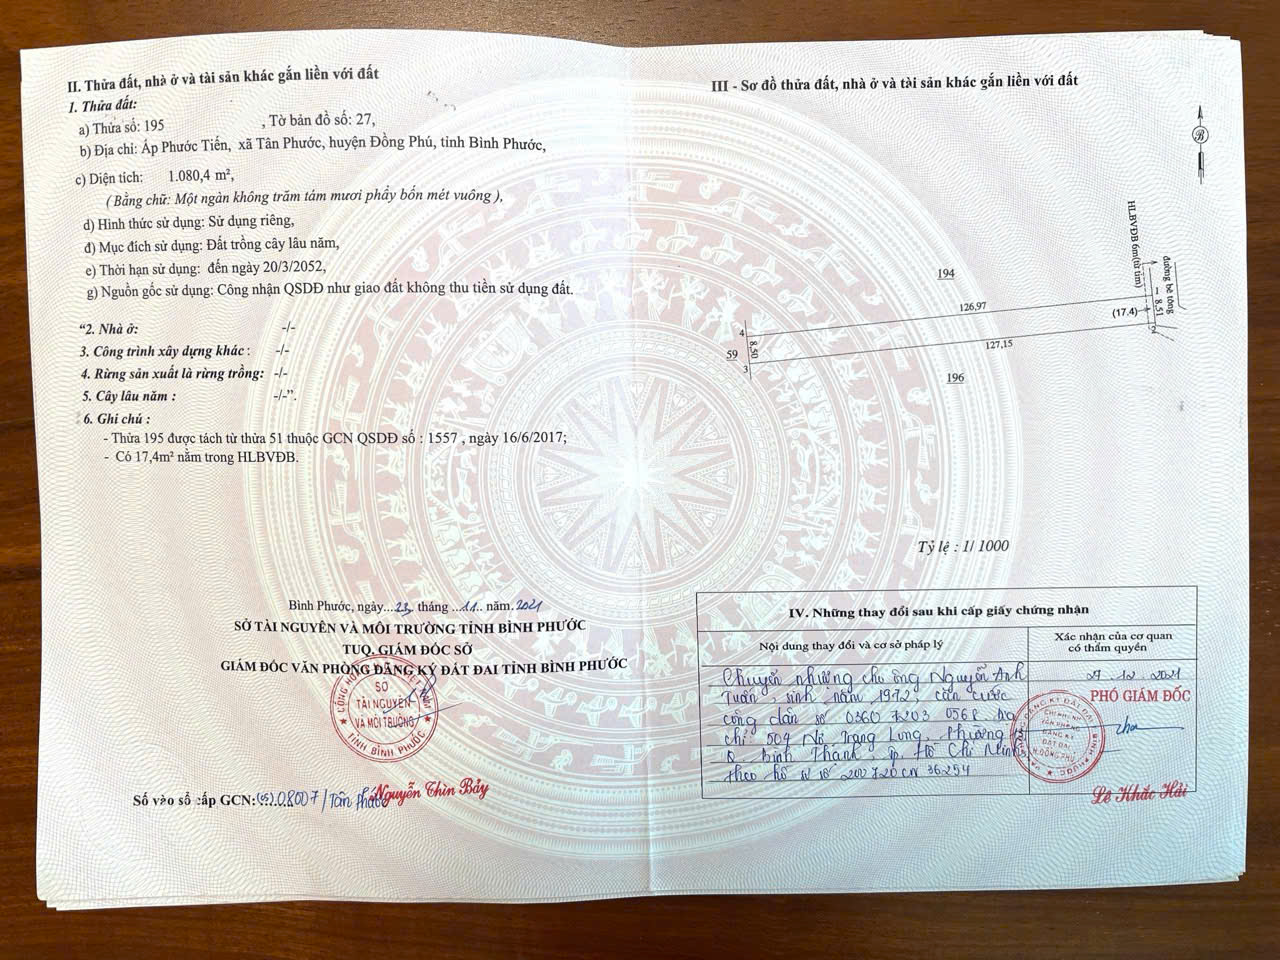 II. Thửa đất, nhà ở và tài sản khác gắn liền với đất
1. Thửa đất:
a) Thửa số: 195 , Tờ bản đồ số: 27,
b) Địa chỉ: Ấp Phước Tiến, xã Tân Phước, huyện Đồng Phú, tỉnh Bình Phước,
c) Diện tích: 1.080,4 m²,
( Bằng chữ: Một ngàn không trăm tám mươi phẩy bốn mét vuông ),
d) Hình thức sử dụng: Sử dụng riêng,
đ) Mục đích sử dụng: Đất trồng cây lâu năm,
e) Thời hạn sử dụng: đến ngày 20/3/2052,
g) Nguồn gốc sử dụng: Công nhận QSDĐ như giao đất không thu tiền sử dụng đất.
“2. Nhà ở: -/-
3. Công trình xây dựng khác : -/-
4. Rừng sản xuất là rừng trồng: -/-
5. Cây lâu năm : -/-”.
6. Ghi chú :
- Thửa 195 được tách từ thửa 51 thuộc GCN QSDĐ số : 1557 , ngày 16/6/2017;
- Có 17,4m² nằm trong HLBVĐB.
Bình Phước, ngày...23. tháng ...11.. năm.2021
SỞ TÀI NGUYÊN VÀ MÔI TRƯỜNG TỈNH BÌNH PHƯỚC
TUQ. GIÁM ĐỐC SỞ
GIÁM ĐỐC VĂN PHÒNG ĐĂNG KÝ ĐẤT ĐAI TỈNH BÌNH PHƯỚC
SỞ
TÀI NGUYÊN
VÀ MÔI TRƯỜNG
TỈNH BÌNH PHƯỚC
Nguyễn Thìn Bảy
Số vào sổ cấp GCN: 08007/Tân Phước
III - Sơ đồ thửa đất, nhà ở và tài sản khác gắn liền với đất
B
HLBVĐB 6m(từ tim)
đường bê tông
194
126,97
1
8,51
(17.4)
2
4
8,50
3
59
127,15
196
Tỷ lệ : 1/ 1000
IV. Những thay đổi sau khi cấp giấy chứng nhận
Nội dung thay đổi và cơ sở pháp lý
Xác nhận của cơ quan
có thẩm quyền
Chuyển nhượng cho ông Nguyễn Anh
Tuấn, sinh năm 1972, căn cước
công dân số 036072030568, địa
chỉ 504 Nơ Trang Long, Phường
Q. Bình Thạnh, Tp. Hồ Chí Minh
theo hồ sơ số
27.12.2021
PHÓ GIÁM ĐỐC
CHI NHÁNH
VĂN PHÒNG
ĐĂNG KÝ
ĐẤT ĐAI
H.ĐỒNG PHÚ
Lê Khắc Hải